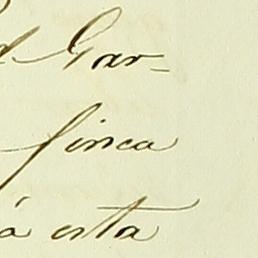 d Gar-
finca
á esta